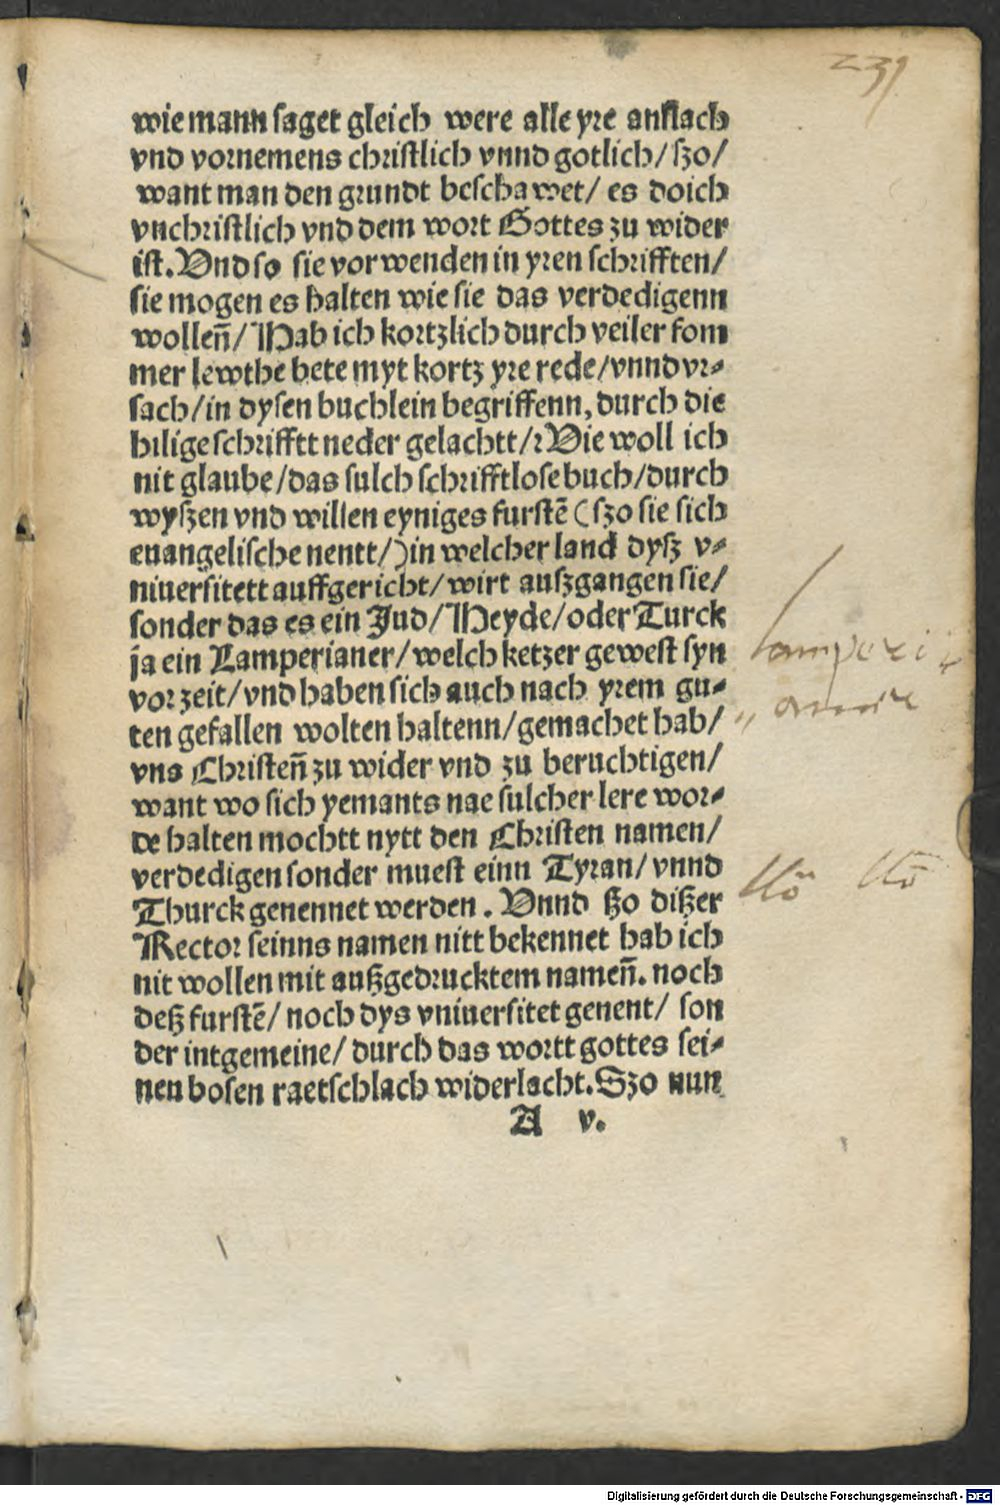 231
wie mann saget gleich were alle yre anslach
vnd vornemens christlich vnnd gotlich/ szo/
want man den grundt beschawet/ es doich
vnchristlich vnd dem wort Gottes zu wider
ist. Vnd so sie vorwenden in yren schrifften/
sie mogen es halten wie sie das verdedigenn
wolleñ/ Hab ich kortzlich durch veiler fom
mer lewthe bete myt kortz yre rede/ vnnd vr⸗
sach/ in dysen buchlein begriffenn, durch die
hilige schrifftt neder gelachtt/ Wie woll ich
nit glaube/ das sulch schrifftlose buch/ durch
wyszen vnd willen eyniges furstē (szo sie sich
euangelische nentt/) in welcher land dysz v⸗
niuersitett auffgericht/ wirt auszgangen sie/
sonder das es ein Jud/ Heyde/ oder Turck
ja ein Lamperianer/ welch ketzer gewest syn
vor zeit/ vnd haben sich auch nach yrem gu⸗
ten gefallen wolten haltenn/ gemachet hab/
vns Christeñ zu wider vnd zu beruchtigen/
want wo sich yemants nae sulcher lere wor⸗
de halten mochtt nytt den Christen namen/
verdedigen sonder muest einn Tyran/ vnnd
Thurck genennet werden. Vnnd ßo dißer
Rector seinns namen nitt bekennet hab ich
nit wollen mit außgedrucktem nameñ. noch
deß furstē/ noch dys vniuersitet genent/ son
der intgemeine/ durch das wortt gottes sei⸗
neu bosen raetschlach widerlacht. Szo nun
A v.
Digitalisierung gefördert durch die Deutsche Forschungsgemeinschaft - DFG